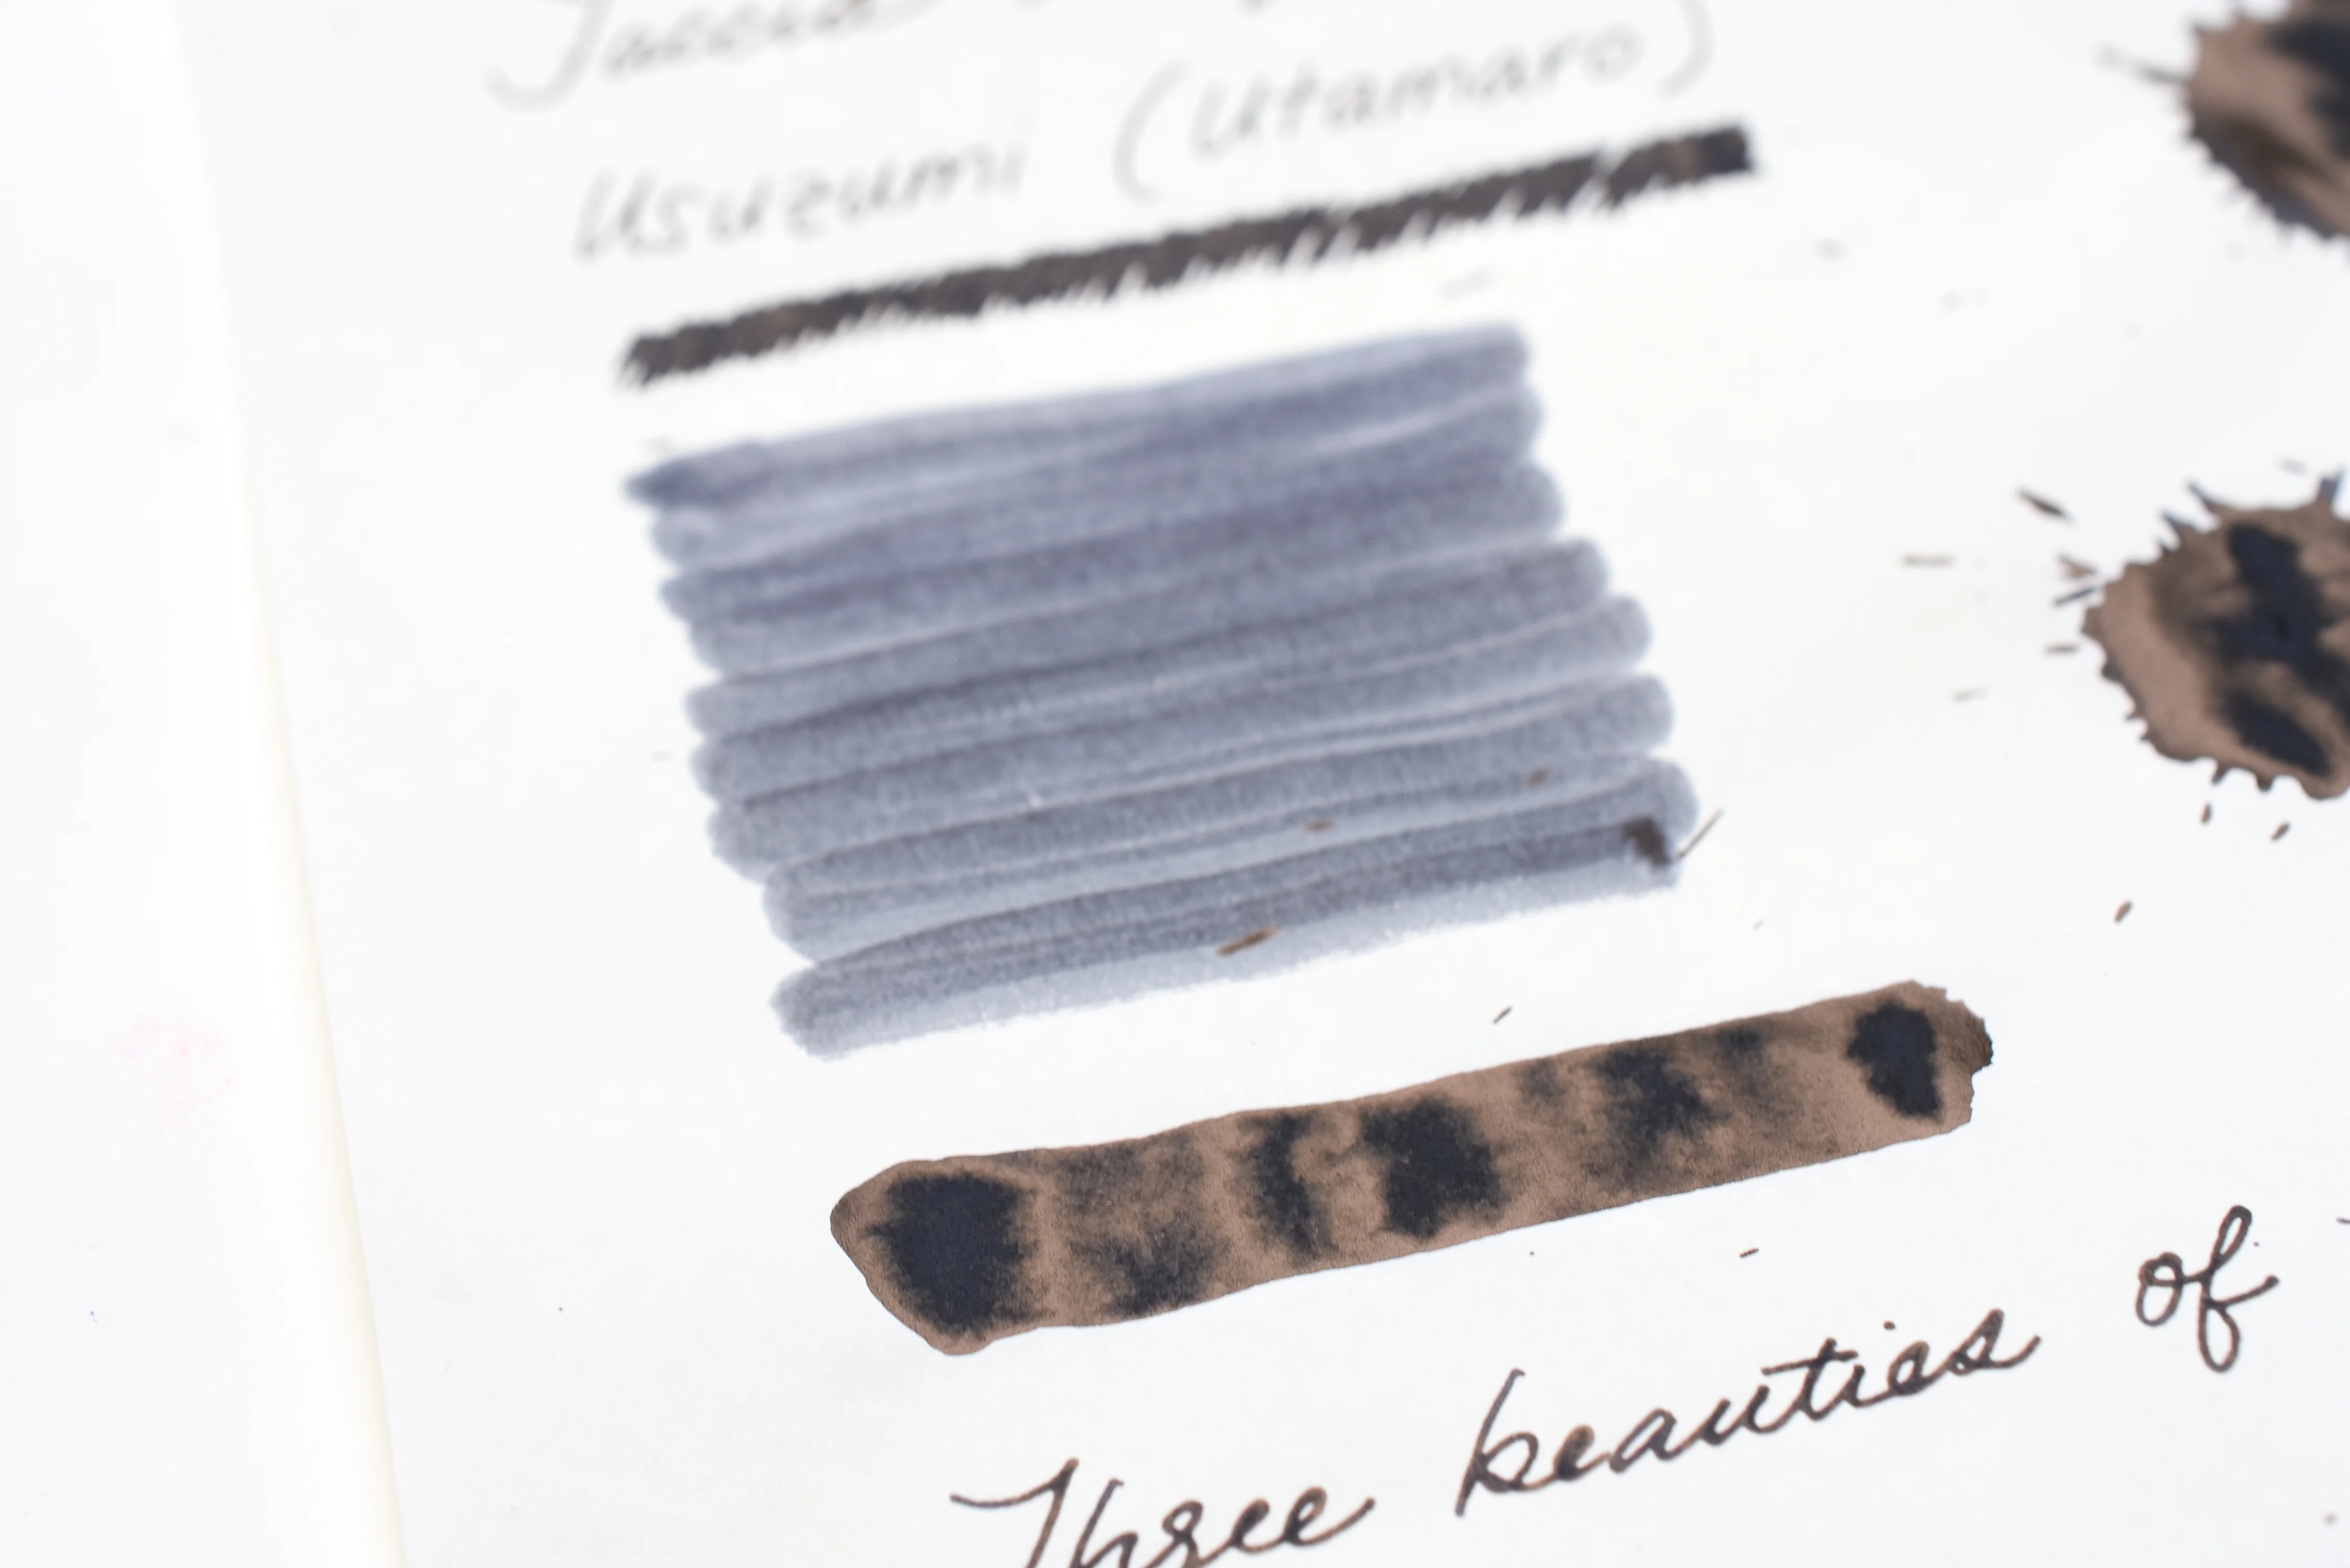 Usuzumi (Utamaro)
Three beauties of